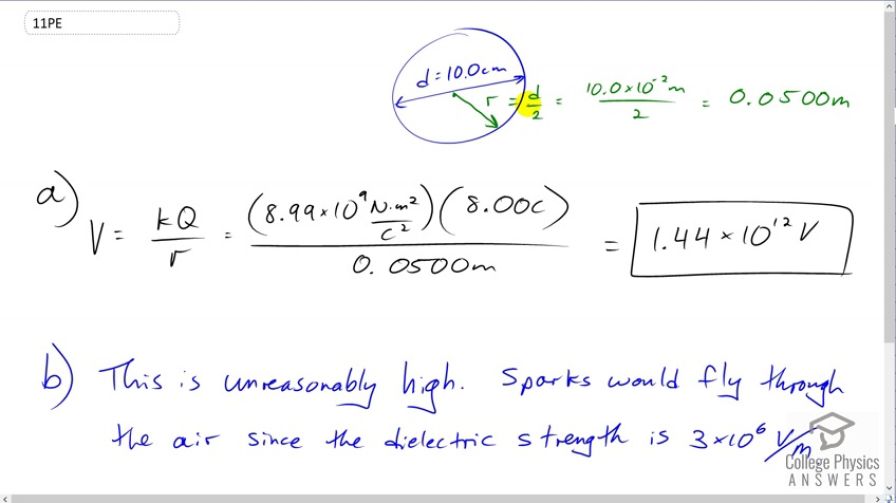 11PE
d = 10.0cm
r = d/2 = 10.0×10⁻² m / 2 = 0.0500m
a) V = kQ/r = (8.99×10⁹ N·m²/C²)(8.00C) / 0.0500m = 1.44×10¹² V
b) This is unreasonably high. Sparks would fly through
the air since the dielectric strength is 3×10⁶ V/m
College Physics
ANSWERS